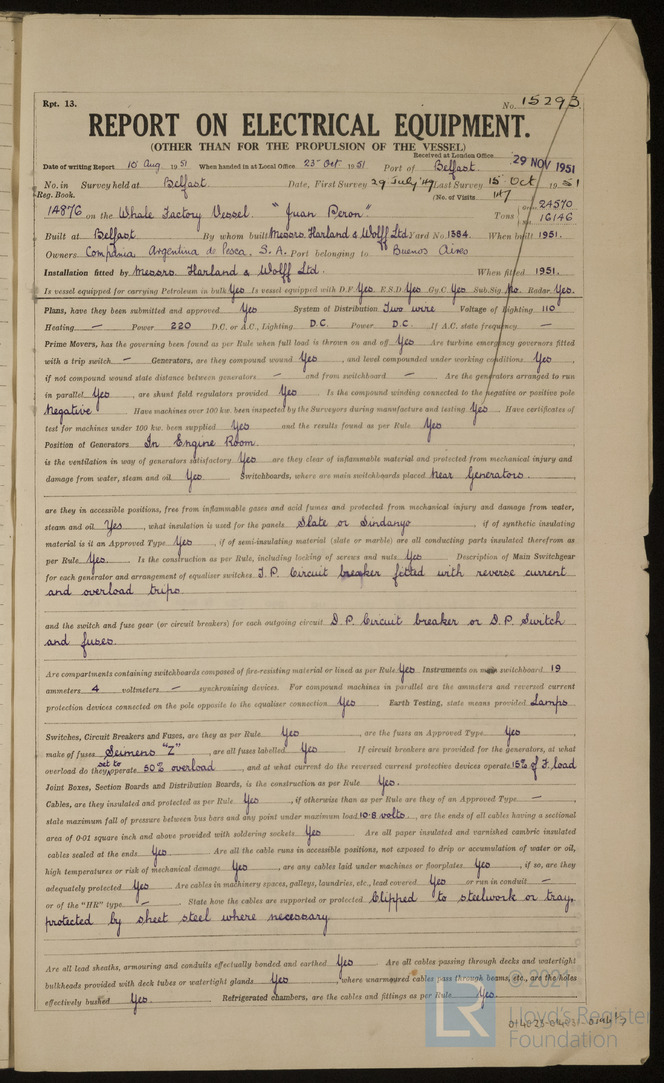 Rpt. 13.
No. 15293
REPORT ON ELECTRICAL EQUIPMENT.
(OTHER THAN FOR THE PROPULSION OF THE VESSEL)
Received at London Office 29 NOV 1951
Date of writing Report 10 Aug 1951 When handed in at Local Office 23 Oct 1951 Port of Belfast
No. in Reg. Book. Survey held at Belfast. Date, First Survey 29 July '49 Last Survey 15 Oct 1951
(No. of Visits 147
14876 on the Whale Factory Vessel. "Juan Peron". Tons 24570 16146
Built at Belfast By whom built Messrs. Harland & Wolff Ltd Yard No. 1384. When built 1951.
Owners Compania Argentina de Pesca, S.A. Port belonging to Buenos Aires
Installation fitted by Messrs Harland & Wolff Ltd. When fitted 1951.
Is vessel equipped for carrying Petroleum in bulk Yes Is vessel equipped with D.F. Yes E.S.D. Yes Gy.C. Yes Sub.Sig. No. Radar Yes.
Plans, have they been submitted and approved Yes System of Distribution Two wire Voltage of Lighting 110
Heating — Power 220 D.C. or A.C., Lighting D.C. Power D.C. If A.C. state frequency —
Prime Movers, has the governing been found as per Rule when full load is thrown on and off Yes Are turbine emergency governors fitted
with a trip switch — Generators, are they compound wound Yes, and level compounded under working conditions Yes,
if not compound wound state distance between generators — and from switchboard — Are the generators arranged to run
in parallel Yes, are shunt field regulators provided Yes Is the compound winding connected to the negative or positive pole
Negative Have machines over 100 kw. been inspected by the Surveyors during manufacture and testing Yes Have certificates of
test for machines under 100 kw. been supplied Yes and the results found as per Rule Yes
Position of Generators In Engine Room.
is the ventilation in way of generators satisfactory Yes are they clear of inflammable material and protected from mechanical injury and
damage from water, steam and oil Yes Switchboards, where are main switchboards placed Near Generators.
are they in accessible positions, free from inflammable gases and acid fumes and protected from mechanical injury and damage from water,
steam and oil Yes, what insulation is used for the panels Slate or Sindanyo, if of synthetic insulating
material is it an Approved Type Yes, if of semi-insulating material (slate or marble) are all conducting parts insulated therefrom as
per Rule Yes. Is the construction as per Rule, including locking of screws and nuts Yes Description of Main Switchgear
for each generator and arrangement of equaliser switches T.P. Circuit breaker fitted with reverse current
and overload trips.
and the switch and fuse gear (or circuit breakers) for each outgoing circuit D.P. Circuit breaker or D.P. Switch
and fuses
Are compartments containing switchboards composed of fire-resisting material or lined as per Rule Yes Instruments on main switchboard 19
ammeters 4 voltmeters — synchronising devices. For compound machines in parallel are the ammeters and reversed current
protection devices connected on the pole opposite to the equaliser connection Yes Earth Testing, state means provided Lamps
Switches, Circuit Breakers and Fuses, are they as per Rule Yes, are the fuses an Approved Type Yes,
make of fuses Seimens "Z", are all fuses labelled Yes If circuit breakers are provided for the generators, at what
overload do they set to operate 50% overload, and at what current do the reversed current protective devices operate 15% of F. load
Joint Boxes, Section Boards and Distribution Boards, is the construction as per Rule Yes.
Cables, are they insulated and protected as per Rule Yes, if otherwise than as per Rule are they of an Approved Type —,
state maximum fall of pressure between bus bars and any point under maximum load 10.8 volts, are the ends of all cables having a sectional
area of 0·01 square inch and above provided with soldering sockets Yes Are all paper insulated and varnished cambric insulated
cables sealed at the ends Yes Are all the cable runs in accessible positions, not exposed to drip or accumulation of water or oil,
high temperatures or risk of mechanical damage Yes, are any cables laid under machines or floorplates Yes, if so, are they
adequately protected Yes Are cables in machinery spaces, galleys, laundries, etc., lead covered Yes or run in conduit —
or of the "HR" type — State how the cables are supported or protected Clipped to steelwork or tray,
protected by sheet steel where necessary
Are all lead sheaths, armouring and conduits effectually bonded and earthed Yes Are all cables passing through decks and watertight
bulkheads provided with deck tubes or watertight glands Yes, where unarmoured cables pass through beams, etc., are the holes
effectively bushed Yes. Refrigerated chambers, are the cables and fittings as per Rule Yes.
© 2021
LR
Lloyd's Register
Foundation